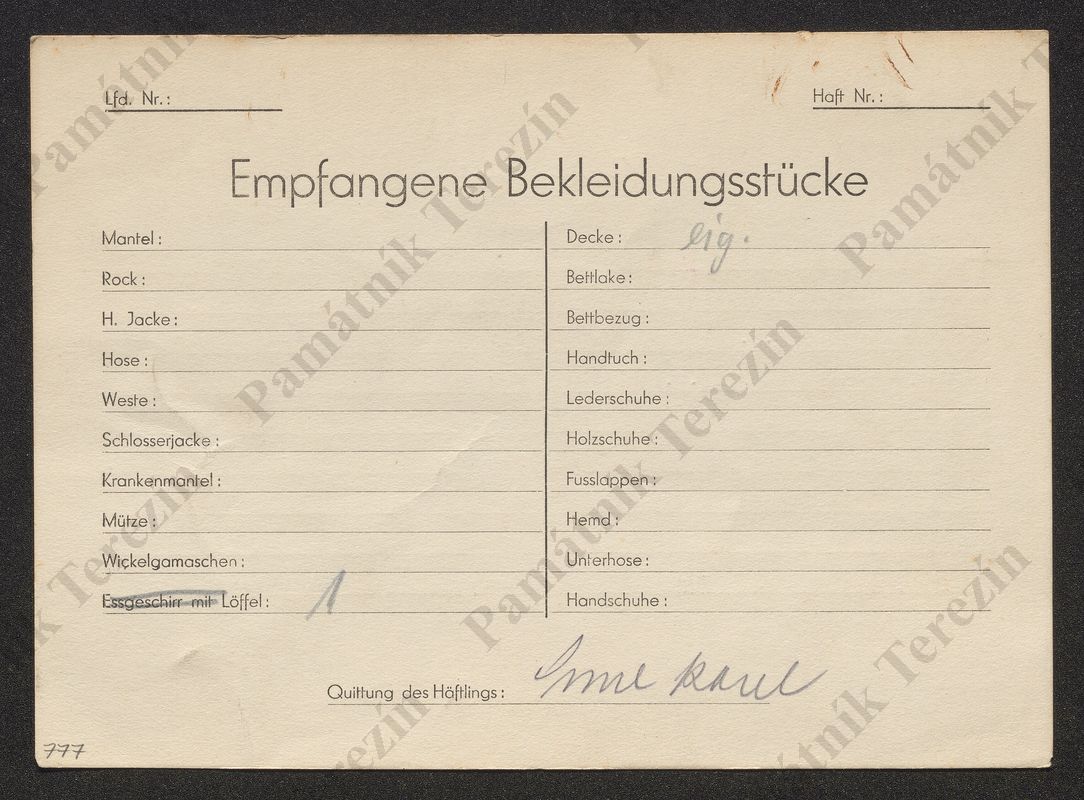 Lfd. Nr.:
Haft Nr.:
Empfangene Bekleidungsstücke
Mantel:
Rock:
H. Jacke:
Hose:
Weste:
Schlosserjacke:
Krankenmantel:
Mütze:
Wickelgamaschen:
Essgeschirr mit Löffel: 1
Decke: eig.
Bettlake:
Bettbezug:
Handtuch:
Lederschuhe:
Holzschuhe:
Fusslappen:
Hemd:
Unterhose:
Handschuhe:
Quittung des Häftlings: Karel
777
Památník Terezín